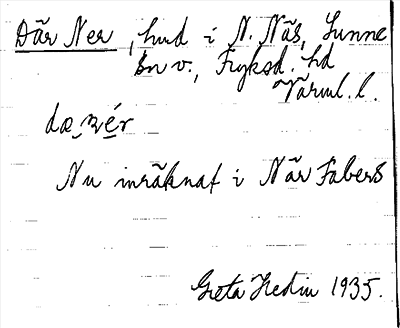 Där Ner, hmd i N. Näs, Sunne
sn v., Fryksd. hd
Värml. l.
dæ, nér
Nu inräknat i När Fabers
Greta Hedin 1935.